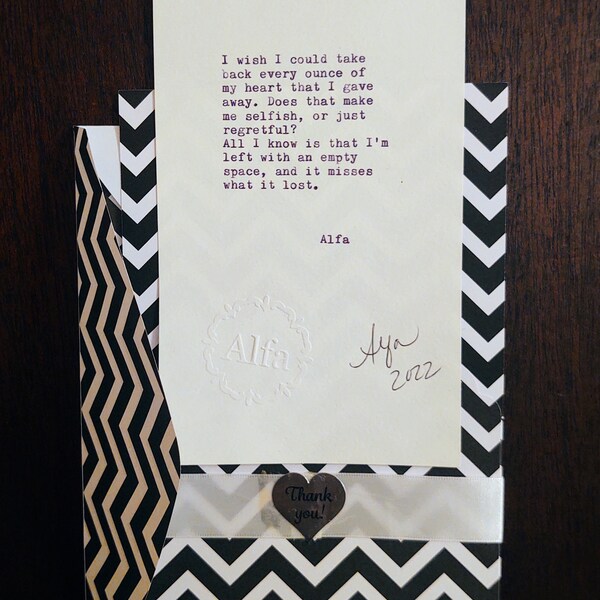 I wish I could take
back every ounce of
my heart that I gave
away. Does that make
me selfish, or just
regretful?
All I know is that I'm
left with an empty
space, and it misses
what it lost.
Alfa
Alfa
Alfa
2022
Thank
you!